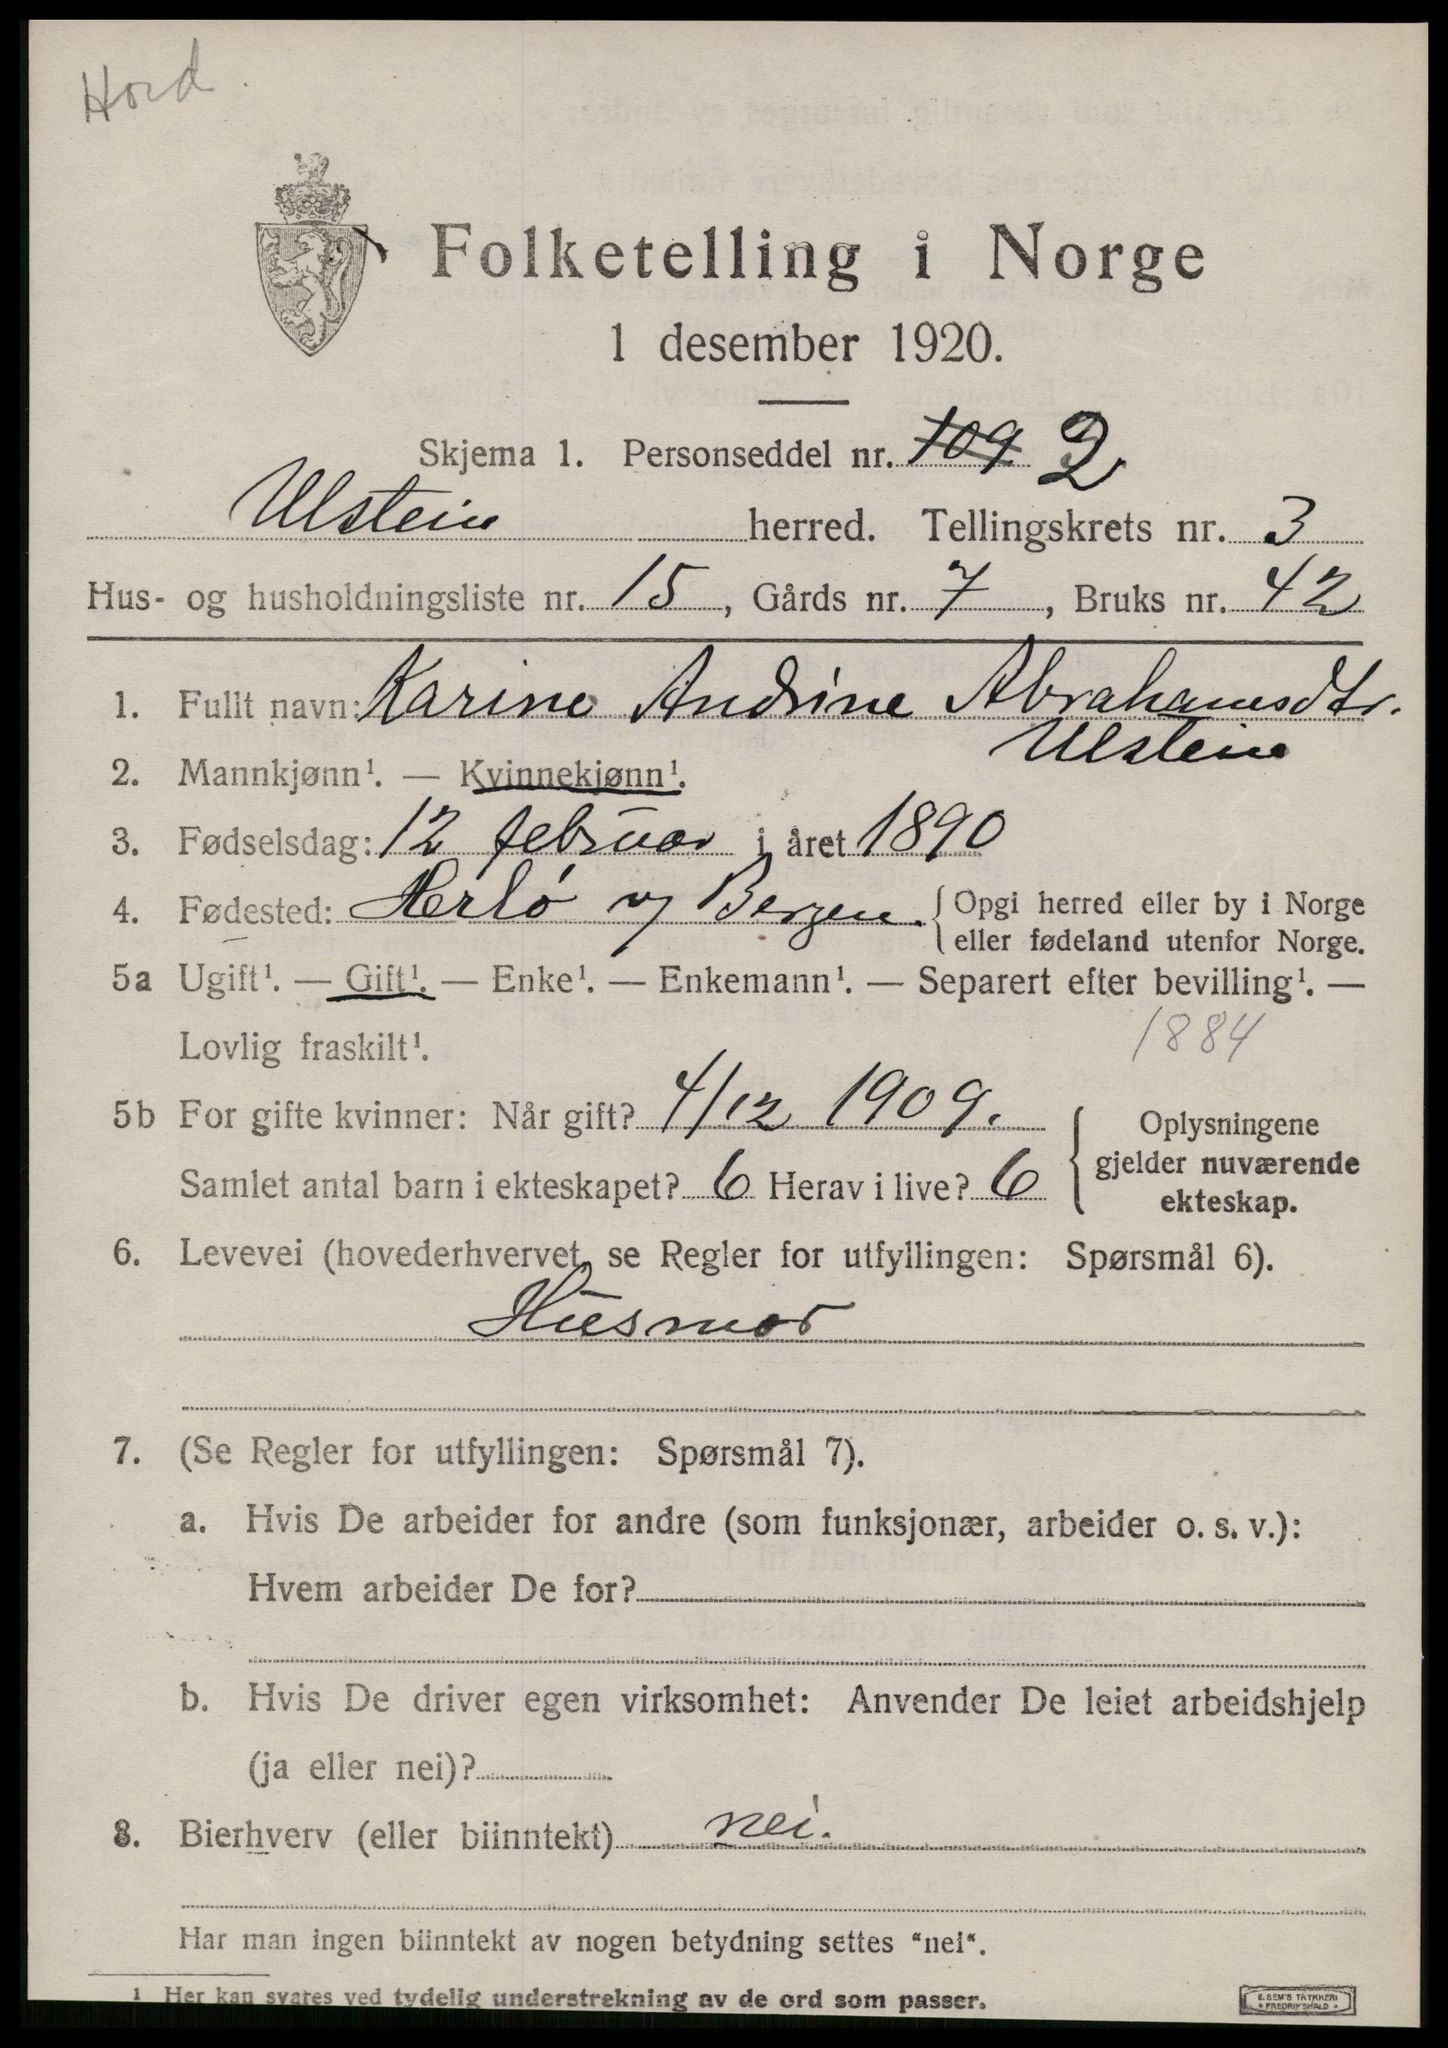 Hord
Folketelling i Norge
1 desember 1920.
Skjema 1. Personseddel nr. 109 2
Ulstein herred. Tellingskrets nr. 3
Hus- og husholdningsliste nr. 15, Gårds nr. 7, Bruks nr. 42
1. Fullt navn: Karine Andrine Abrahamsdtr.
Ulstein
2. Mannkjønn¹. — Kvinnekjønn¹.
3. Fødselsdag: 12 februar i året 1890
4. Fødested: Herlö v/ Bergen. { Opgi herred eller by i Norge
eller fødeland utenfor Norge.
5a Ugift¹. — Gift¹. — Enke¹. — Enkemann¹. — Separert efter bevilling¹. —
Lovlig fraskilt¹. 1884
5b For gifte kvinner: Når gift? 4/12 1909. { Oplysningene
gjelder nuværende
Samlet antal barn i ekteskapet? 6 Herav i live? 6 ekteskap.
6. Levevei (hovederhvervet, se Regler for utfyllingen: Spørsmål 6).
Husmor
7. (Se Regler for utfyllingen: Spørsmål 7).
a. Hvis De arbeider for andre (som funksjonær, arbeider o. s. v.):
Hvem arbeider De for?
b. Hvis De driver egen virksomhet: Anvender De leiet arbeidshjelp
(ja eller nei)?
8. Bierhverv (eller biinntekt) nei.
Har man ingen biinntekt av nogen betydning settes "nei".
¹ Her kan svares ved tydelig understrekning av de ord som passer.
E. SEM'S TRYKKERI
FREDRIKSHALD